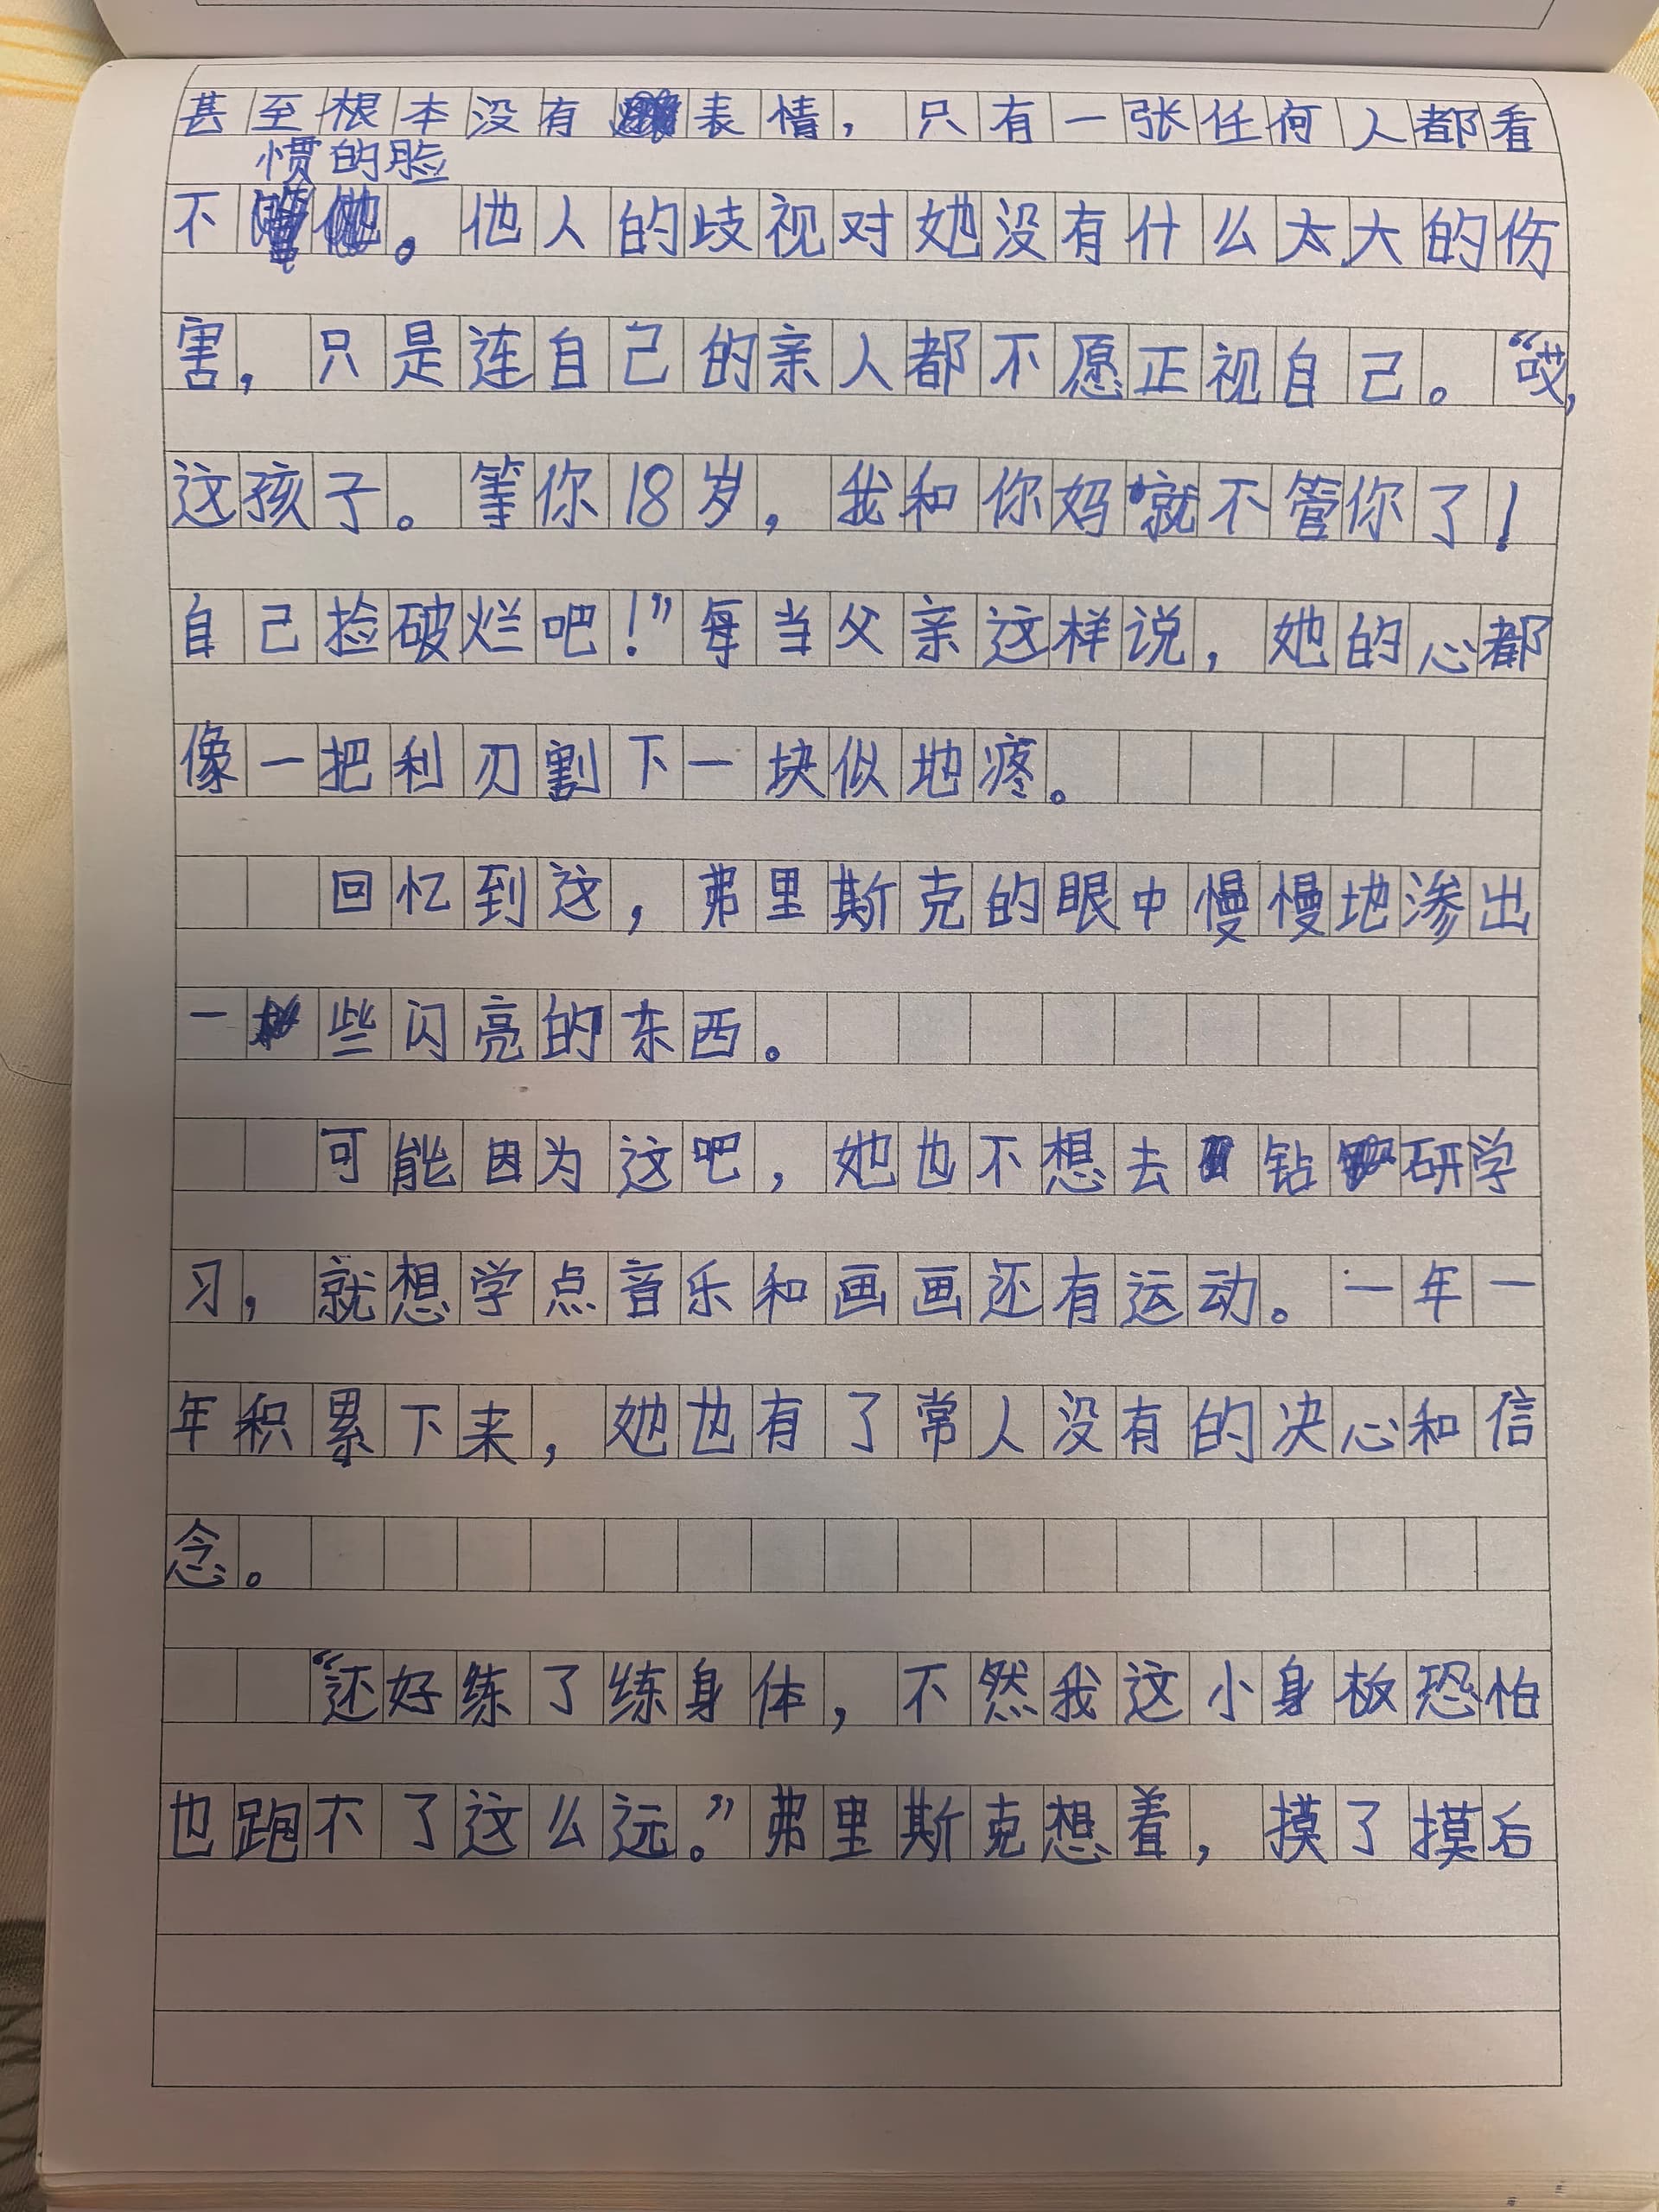 甚至根本没有表情，只有一张任何人都看
惯的脸
不。他人的歧视对她没有什么太大的伤
害，只是连自己的亲人都不愿正视自己。“哎，
这孩子。等你18岁，我和你妈就不管你了！
自己捡破烂吧！”每当父亲这样说，她的心都
像一把利刃割下一块似地疼。
回忆到这，弗里斯克的眼中慢慢地渗出
一些闪亮的东西。
可能因为这吧，她也不想去钻研学
习，就想学点音乐和画画还有运动。一年一
年积累下来，她也有了常人没有的决心和信
念。
“还好练了练身体，不然我这小身板恐怕
也跑不了这么远。”弗里斯克想着，摸了摸后